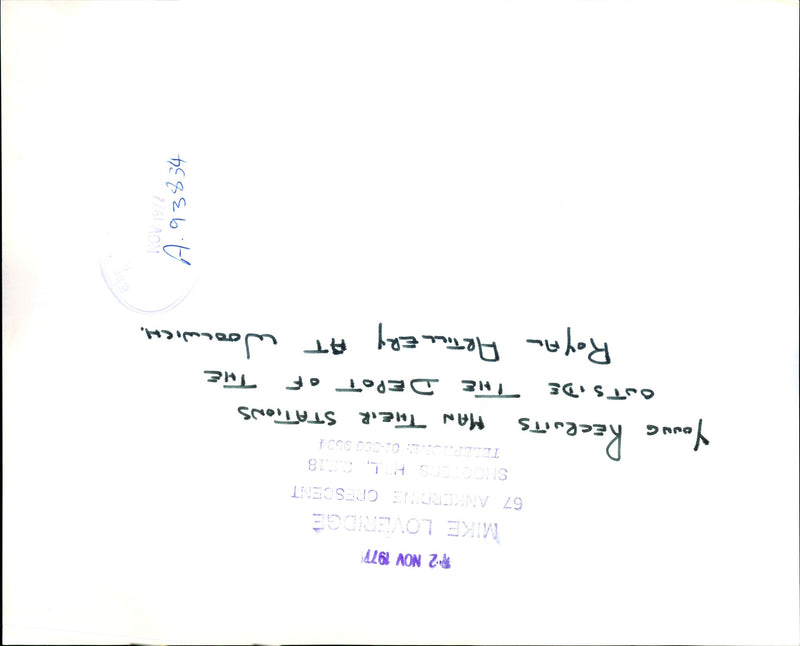 2 NOV 1977
MIKE LOVERIDGE
67 ANKERDINE CRESCENT
SHOOTERS HILL, S.E.18
TELEPHONE: 01-
YOUNG RECRUITS MAN THEIR STATIONS
OUTSIDE THE DEPOT OF THE
ROYAL ARTILLERY AT WOOLWICH.
NOV 1977
A.93834